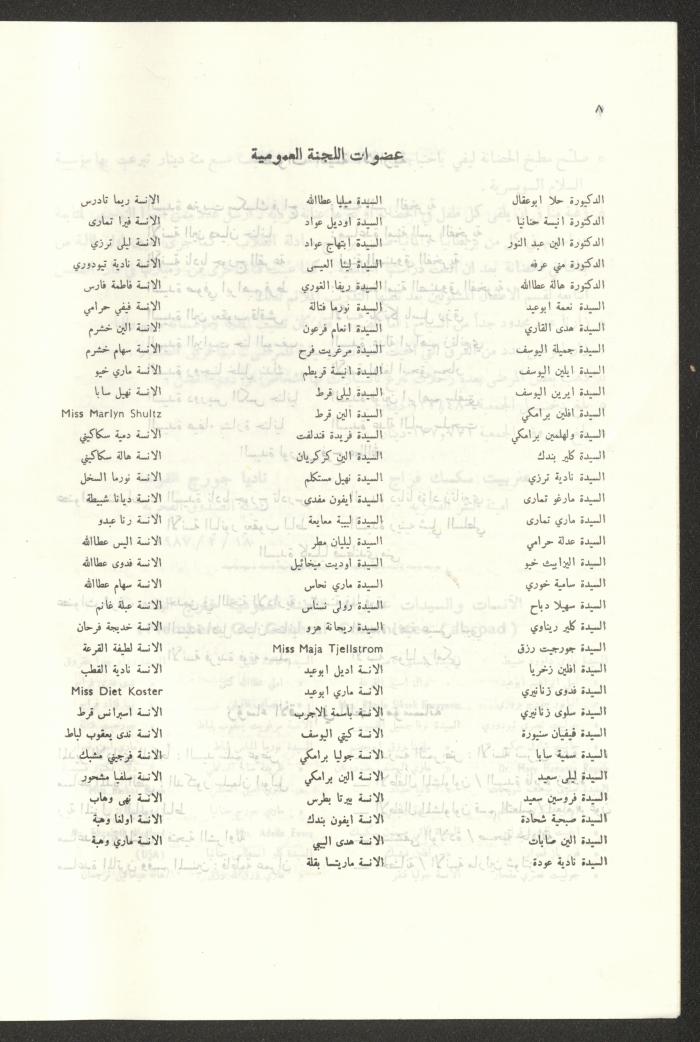 ٨
عضوات اللجنة العمومية
الدكيورة حلا ابوعقال
الدكتورة انيسة حنانيا
الدكتورة الين عبد النور
الدكتورة مني عرفه
الدكتورة هالة عطاالله
السيدة نعمة ابوعيد
السيدة هدى القاري
السيدة جميلة اليوسف
السيدة ايلين اليوسف
السيدة ايرين اليوسف
السيدة افلين برامكي
السيدة ولهلمين برامكي
السيدة كلير بندك
السيدة نادية ترزي
السيدة مارغو تمارى
السيدة ماري تمارى
السيدة عدلة حرامي
السيدة اليزابيث خيو
السيدة سامية خوري
السيدة سهيلا دباح
السيدة كلير ريناوي
السيدة جورجيت رزق
السيدة افلين زخريا
السيدة فدوى زنانيري
السيدة سلوى زنانيري
السيدة فيفيان سنيورة
السيدة سمية سابا
السيدة ليلى سعيد
السيدة فروسين سعيد
السيدة صبحية شحادة
السيدة الين صابات
السيدة نادية عودة
السيدة ميليا عطاالله
السيدة اوديل عواد
السيدة ابتهاج عواد
السيدة لينا العيسى
السيدة ريفا الغوري
السيدة نورما فتالة
السيدة انعام فرعون
السيدة مرغريت فرح
السيدة انيسة قريطم
السيدة ليلى قرط
السيدة الين قرط
السيدة فريدة قندلفت
السيدة الين كزكريان
السيدة نهيل مستكلم
السيدة ايفون مغدى
السيدة لبيبة معايعة
السيدة ليليان مطر
السيدة اوديت ميخائيل
السيدة ماري نحاس
السيدة رولى نسناس
السيدة ريحانة هزو
Miss Maja Tjellstrom
الانسة اديل ابوعيد
الانسة ماري ابوعيد
الانسة باسمة الاجرب
الانسة كيتي اليوسف
الانسة جوليا برامكي
الانسة الين برامكي
الانسة بيرتا بطرس
الانسة ايفون بندك
الانسة هدى البيي
الانسة ماريتسا بقلة
الانسة ريما تادرس
الانسة فيرا تمارى
الانسة ليلى ترزي
الانسة نادية تيودوري
الانسة فاطمة فارس
الانسة فيفي حرامي
الانسة الين خشرم
الانسة سهام خشرم
الانسة ماري خيو
الانسة نهيل سابا
Miss Marlyn Shultz
الانسة دمية سكاكيني
الانسة هالة سكاكيني
الانسة نورما السخل
الانسة ديانا شبيطة
الانسة رنا عبدو
الانسة اليس عطاالله
الانسة فدوى عطاالله
الانسة سهام عطاالله
الانسة عبلة غانم
الانسة خديجة فرحان
الانسة لطيفة القرعة
الانسة نادية القطب
Miss Diet Koster
الانسة اسبرانس قرط
الانسة ندى يعقوب لباط
الانسة فرجيني مشبك
الانسة سلفيا مشحور
الانسة نهى وهاب
الانسة اولغا وهبة
الانسة ماري وهبة